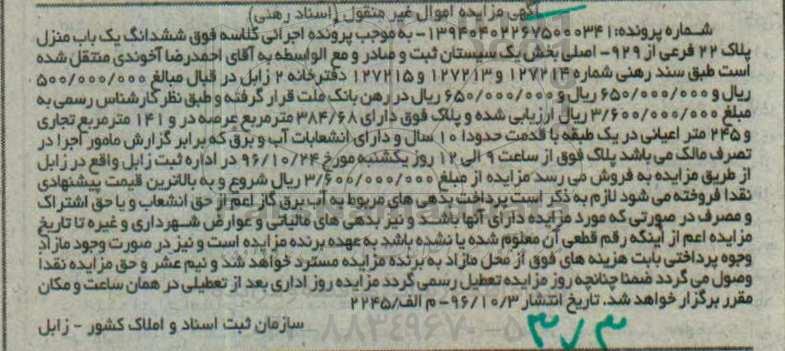 آگهی مزایده اموال غیر منقول (اسناد رهنی)
شماره پرونده: ۱۳۹۴۰۴۰۲۲۶۷۵۰۰۰۳۴۱- به موجب پرونده اجرائی کلاسه فوق ششدانگ یک باب منزل
پلاک ۲۲ فرعی از ۹۲۹- اصلی بخش یک سیستان ثبت و صادر و مع الواسطه به آقای احمدرضا آخوندی منتقل شده
است طبق سند رهنی شماره ۱۲۷۲۱۴ و ۱۲۷۲۱۳ و ۱۲۷۲۱۵ دفترخانه ۲ زابل در قبال مبالغ ۵۰۰/۰۰۰/۰۰۰
ریال و ۶۵۰/۰۰۰/۰۰۰ ریال و ۶۵۰/۰۰۰/۰۰۰ ریال در رهن بانک ملت قرار گرفته و طبق نظر کارشناس رسمی به
مبلغ ۳/۶۰۰/۰۰۰/۰۰۰ ریال ارزیابی شده و پلاک فوق دارای ۳۸۴/۶۸ مترمربع عرصه در و ۱۴۱ مترمربع تجاری
و ۲۴۵ متر اعیانی در یک طبقه با قدمت حدودا ۱۰ سال و دارای انشعابات آب و برق که برابر گزارش مامور اجرا در
تصرف مالک می باشد پلاک فوق از ساعت ۹ الی ۱۲ روز یکشنبه مورخ ۹۶/۱۰/۲۴ در اداره ثبت زابل واقع در زابل
از طریق مزایده به فروش می رسد مزایده از مبلغ ۳/۶۰۰/۰۰۰/۰۰۰ ریال شروع و به بالاترین قیمت پیشنهادی
نقدا فروخته می شود لازم به ذکر است پرداخت بدهی های مربوط به آب برق گاز اعم از حق انشعاب و یا حق اشتراک
و مصرف در صورتی که مورد مزایده دارای آنها باشد و نیز بدهی های مالیاتی و عوارض شهرداری و غیره تا تاریخ
مزایده اعم از اینکه رقم قطعی آن معلوم شده یا نشده باشد به عهده برنده مزایده است و نیز در صورت وجود مازاد
وجوه پرداختی بابت هزینه های فوق از محل مازاد به برنده مزایده مسترد خواهد شد و نیم عشر و حق مزایده نقدا
وصول می گردد ضمنا چنانچه روز مزایده تعطیل رسمی گردد مزایده روز اداری بعد از تعطیلی در همان ساعت و مکان
مقرر برگزار خواهد شد. تاریخ انتشار ۹۶/۱۰/۳- م الف/۲۲۴۵
سازمان ثبت اسناد و املاک کشور - زابل